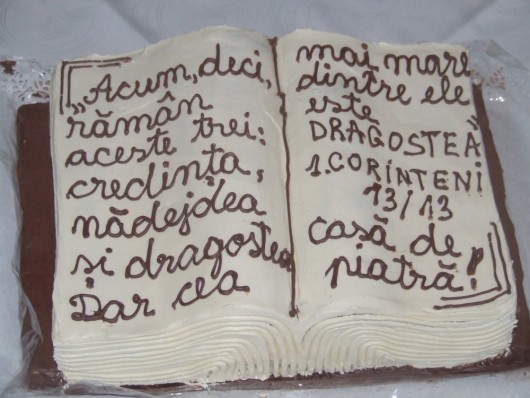 „Acum, deci,
rămân
aceste trei:
credința,
nădejdea
și dragostea
Dar cea
mai mare
dintre ele
este
DRAGOSTEA"
1.CORINTENI
13/13
casă de
piatră!